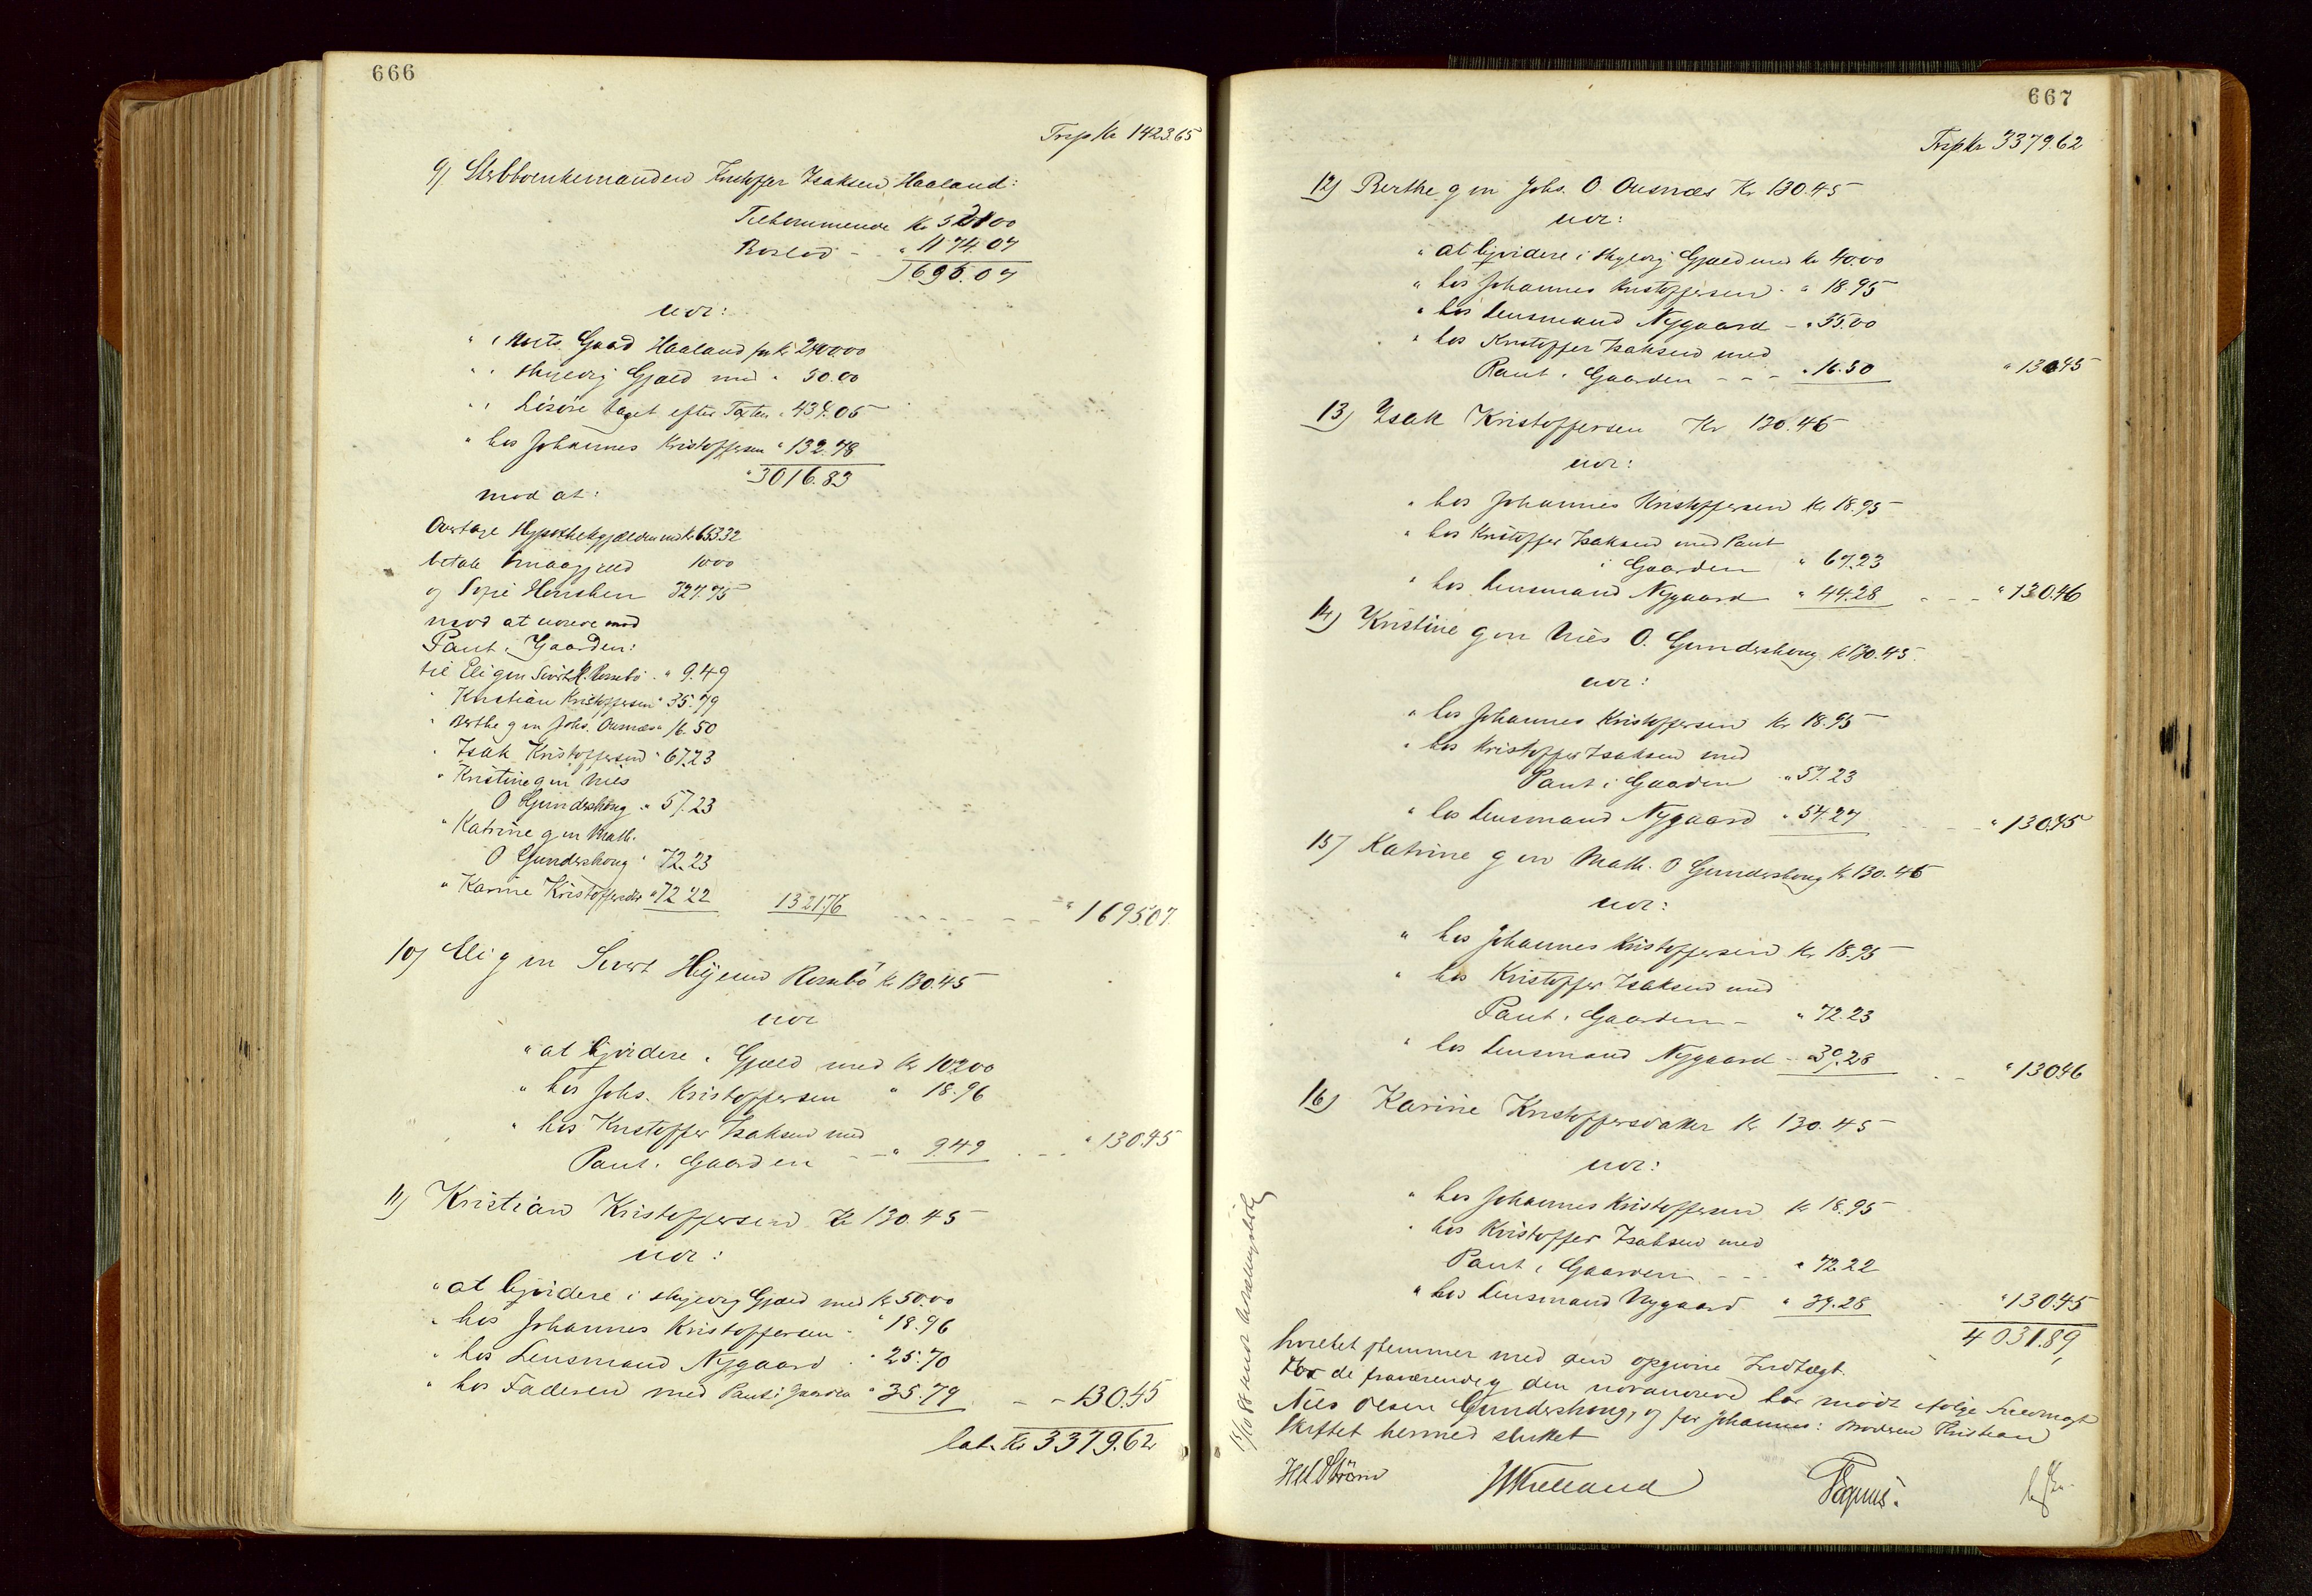 666
Trsp Kr 1423.65
9) Sterbboenkemanden Kristoffer Isaksen Haaland:
Tilkommende Kr 521.00
Boslod - " 1174.07
1695.07
udl:
" i Gaard Haaland for Kr 2400.00
" i skyldig Gjæld med " 50.00
" i Løsøre taget efter Taxten " 434.05
" hos Johannes Kristoffersen " 132.78
" 3016.83
mod at:
Overtage Hypothekgjælden med Kr 653.32
betale Smaagjæld 10.00
og Sofie Henschen 327.75
mod at udrede mod
Pant i Gaarden:
til Eli g m Sivert H. Rossebø " 9.49
" Kristian Kristoffersen " 35.79
" Berthe g m Johs. Ousnæs " 16.50
" Isak Kristoffersen " 67.23
" Kristine g m Nils
O Gunderskoug " 57.23
" Katrine g m Math.
O Gunderskoug " 72.23
" Karine Kristoffersdtr " 72.22 1321.76 - - - " 1695.07
10) Eli g m Sivert H Rossebø Kr 130.45
udl
" at liqvidere i Gjæld med Kr 102.00
" hos Johs. Kristoffersen " 18.96
" hos Kristoffer Isaksen med
Pant i Gaarden - - " 9.49 - - " 130.45
11) Kristian Kristoffersen Kr 130.45
udl:
" at liqvidere i skyldig Gjæld med Kr 50.00
" hos Johannes Kristoffersen - " 18.96
" hos Lensmand Nygaard - " 25.70
" hos Faderen med Pant i Gaarden " 35.79 - - 130.45
Lat. Kr 3379.62
667
Trsp Kr 3379.62
12) Berthe g m Johs. O. Ousnæs Kr 130.45
udl:
" at liqvidere i skyldig Gjæld med Kr 40.00
" hos Johannes Kristoffersen - " 18.95
" hos Lensmand Nygaard - " 55.00
" hos Kristoffer Isaksen med
Pant i Gaarden - - - " 16.50 " 130.45
13) Isak Kristoffersen Kr 130.46
udl:
" hos Johannes Kristoffersen Kr 18.95
" hos Kristoffer Isaksen med Pant
i Gaarden " 67.23
" hos Lensmand Nygaard " 44.28 - - - " 130.46
14) Kristine g m Nils O. Gunderskoug Kr 130.45
udl:
" hos Johannes Kristoffersen Kr 18.95
" hos Kristoffer Isaksen med
Pant i Gaarden " 57.23
" hos Lensmand Nygaard " 54.27 - " 130.45
15) Katrine g m Math. O Gunderskoug Kr 130.46
udl:
" hos Johannes Kristoffersen Kr 18.95
" hos Kristoffer Isaksen med
Pant i Gaarden - " 72.23
" hos Lensmand Nygaard - " 39.28 - - " 130.46
16) Karine Kristoffersdatter Kr 130.45
udl:
" hos Johannes Kristoffersen Kr 18.95
" hos Kristoffer Isaksen med
Pant i Gaarden - - - " 72.22
" hos Lensmand Nygaard " 39.28 " 130.45
4031.89
hvilket stemmer med den opgivne Indtægt.
For de fraværende har mødt ifølge Fuldmagt
Nils Olsen Gunderskoug, og for Johannes: Broderen Kristian
Skiftet hermed sluttet